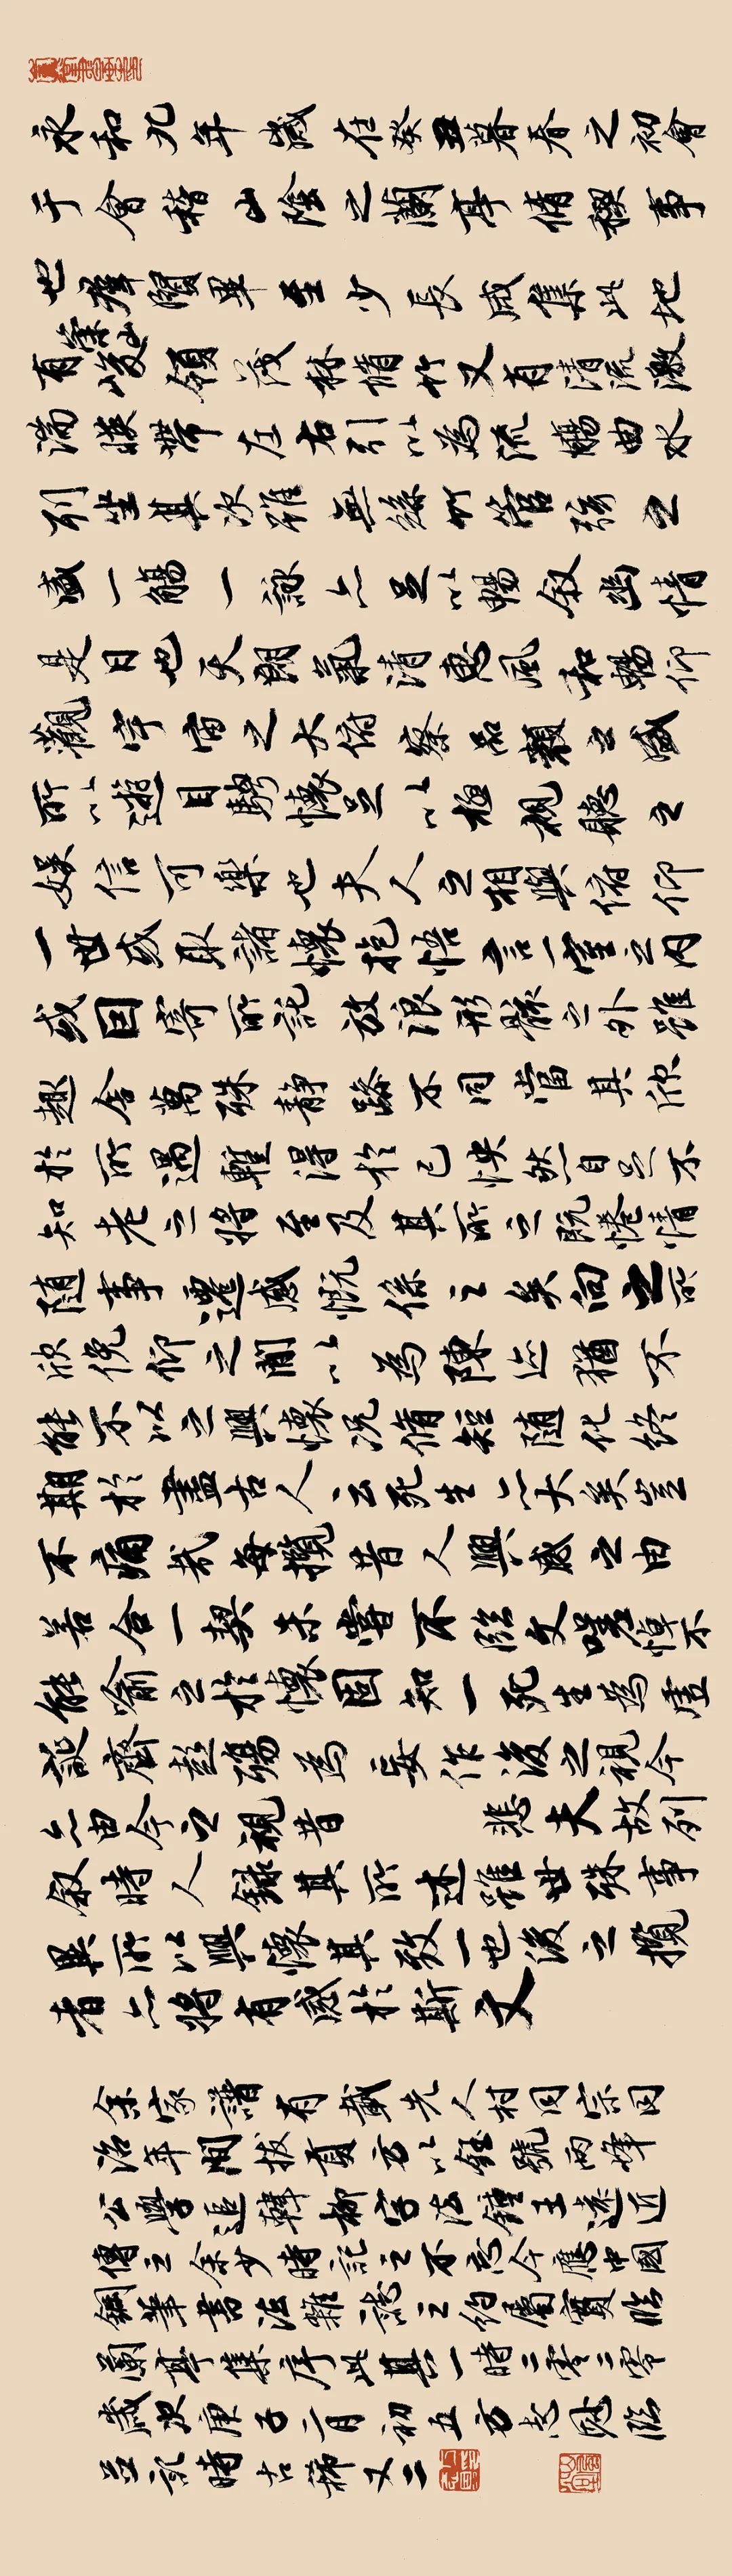 永和九年歲在癸丑暮春之初會
于會稽山陰之蘭亭脩禊事
也群賢畢至少長咸集此地
有崇山峻領茂林脩竹又有清流激
湍暎帶左右引以為流觴曲水
列坐其次雖無絲竹管弦之
盛一觴一詠亦足以暢敘幽情
是日也天朗氣清惠風和暢仰
觀宇宙之大俯察品類之盛
所以遊目騁懷足以極視聽之
娛信可樂也夫人之相與俯仰
一世或取諸懷抱悟言一室之內
或因寄所託放浪形骸之外雖
趣舍萬殊靜躁不同當其欣
於所遇暫得於己怏然自足不
知老之將至及其所之既惓情
隨事遷感慨係之矣向之所
欣俛仰之間以為陳迹猶不
能不以之興懷況脩短隨化終
期於盡古人云死生亦大矣豈
不痛哉每攬昔人興感之由
若合一契未嘗不臨文嗟悼不
能喻之於懷固知一死生為虛
誕齊彭殤為妄作後之視今
亦由今之視昔 悲夫故列
敘時人錄其所述雖世殊事
異所以興懷其致一也後之攬
者亦將有感於斯文
余家譜有載先人村同宗同
治年間拔貢方以鈺號兩峰
公學追韓柳字法鍾王遠近
傳之余少時記之不忘今應中國
鋼筆書法雜誌之約屬實臨
蘭亭集序此其一時二零二零
歲次庚子二月初五方志恩臨
並記時古稀又二